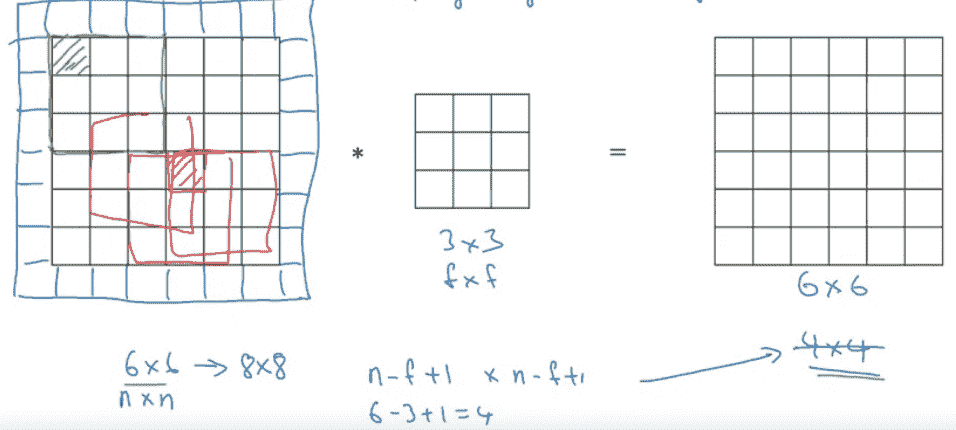 *
=
3×3
f×f
6×6
6×6 → 8×8
n×n
n-f+1 × n-f+1
6-3+1=4
4×4